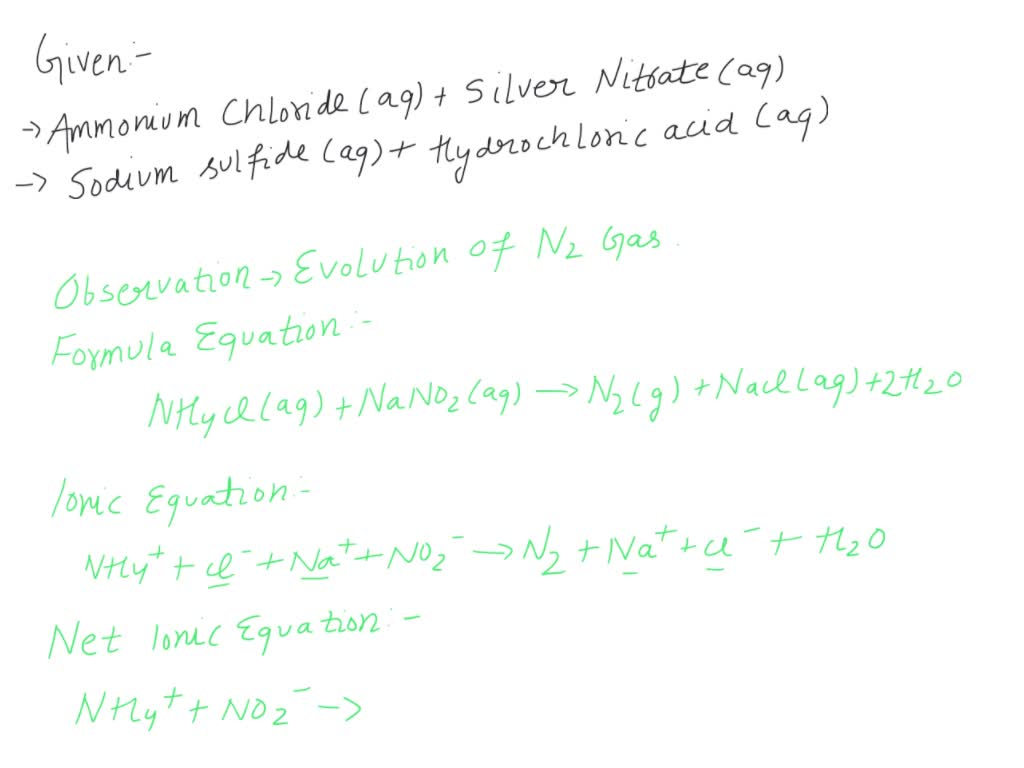 Given:-
→ Ammonium Chloride (aq) + Silver Nitrate (aq)
→ Sodium sulfide (aq) + Hydrochloric acid (aq)
Observation → Evolution of N2 Gas.
Formula Equation:-
NH4Cl (aq) + NaNO2 (aq) → N2 (g) + NaCl (aq) + 2H2O
Ionic Equation:-
NH4+ + Cl- + Na+ + NO2- → N2 + Na+ + Cl- + H2O
Net Ionic Equation:-
NH4+ + NO2- →